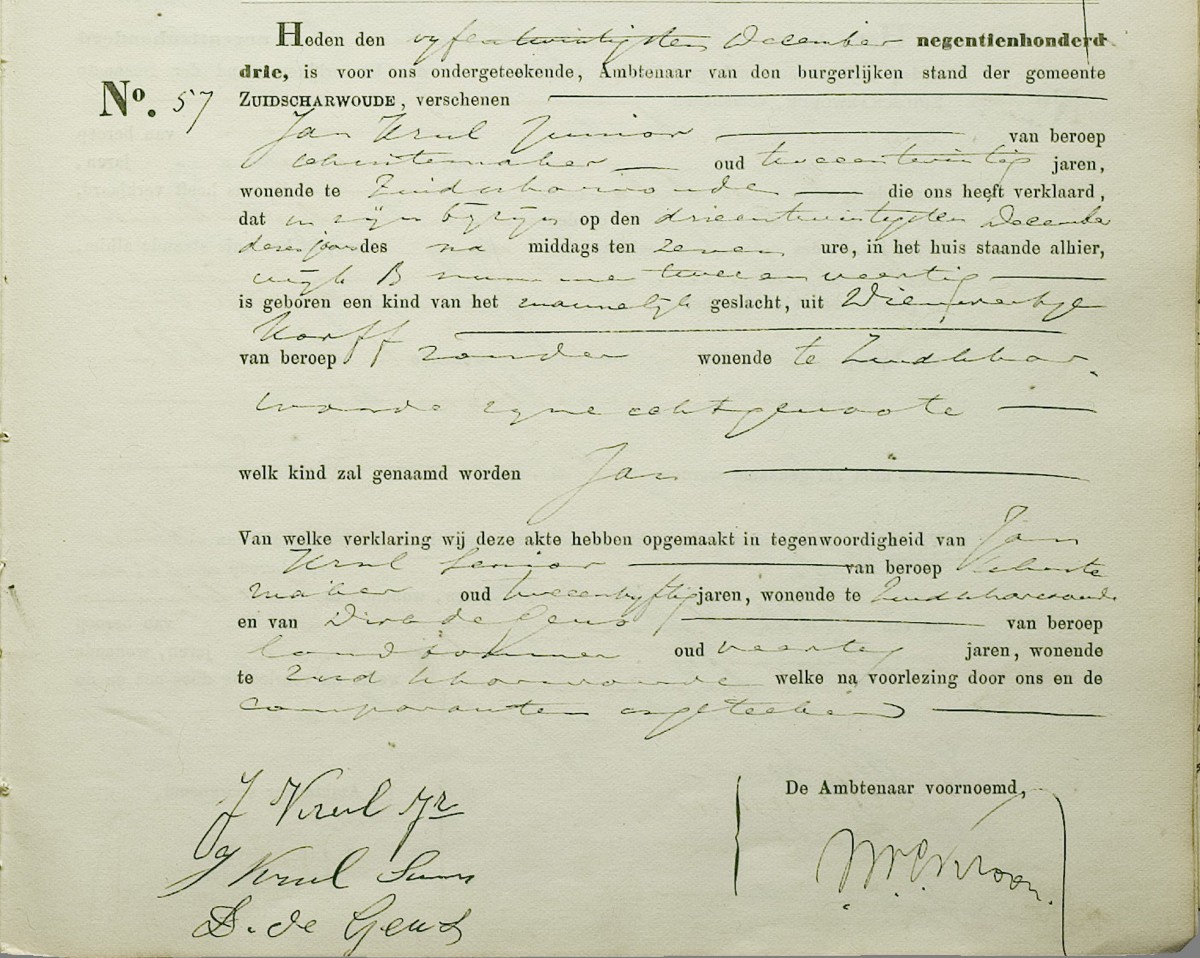 Heden den vyfentwintigsten December negentienhonderd
drie, is voor ons ondergeteekende, Ambtenaar van den burgerlijken stand der gemeente
No. 57 ZUIDSCHARWOUDE, verschenen
Jan Krul Junior van beroep
schuitemaker oud tweeentwintig jaren,
wonende te Zuidscharwoude die ons heeft verklaard,
dat in zijn bijzijn op den drieentwintigsten December
dezes jaar des na middags ten zeven ure, in het huis staande alhier,
wijk B nummer tweeenveertig
is geboren een kind van het mannelijk geslacht, uit
Korff
van beroep zonder wonende te Zuidschar
woude zyne echtgenoote
welk kind zal genaamd worden Jan
Van welke verklaring wij deze akte hebben opgemaakt in tegenwoordigheid van Jan
Krul Senior van beroep schuite
maker oud tweeenvyftig jaren, wonende te Zuidscharwoude
en van Dirk de Geus van beroep
landbouwer oud veertig jaren, wonende
te Zuidscharwoude welke na voorlezing door ons en de
comparanten is geteekend
De Ambtenaar voornoemd,
J Krul Jr
J Krul Senr
D. de Geus